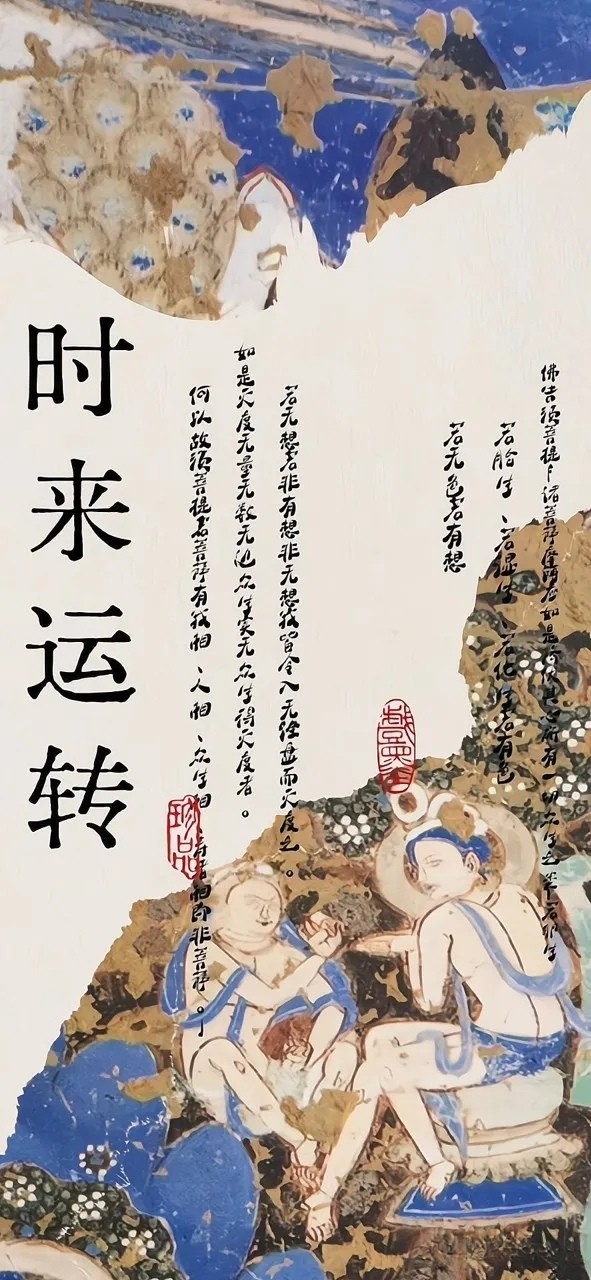 佛告须菩提「诸菩萨摩诃萨应如是降伏其心所有一切众生之类若卵生
若胎生、若湿生、若化生若有色
若无色若有想
若无想若非有想非无想我皆令入无涅盘而灭度之。
如是灭度无量无数无边众生实无众生得灭度者。
何以故须菩提若菩萨有我相、人相、众生相、寿者相即非菩萨。」
珍品
时来运转